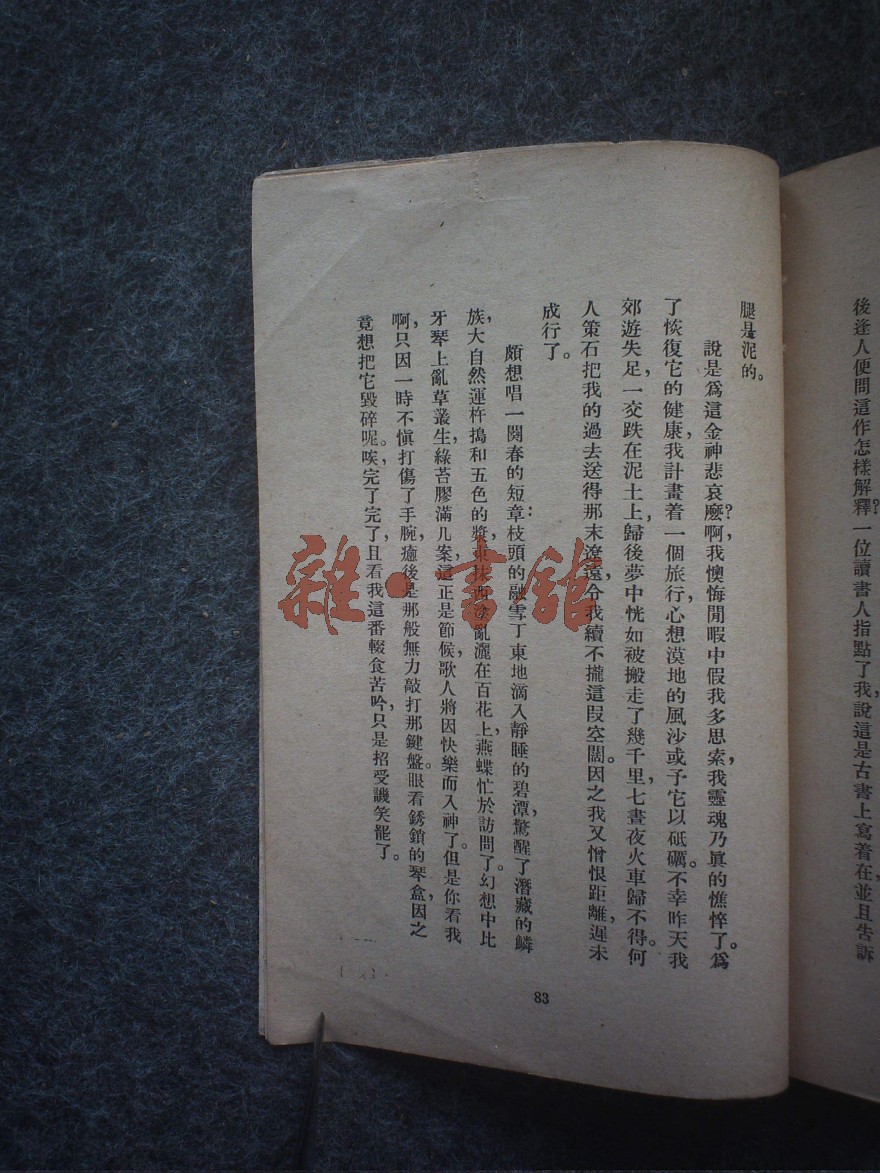 後逢人便問這作怎樣解釋?一位讀書人指點了我,說這是古書上寫着在,並且告訴
腿是泥的。
說是爲這金神悲哀麽?啊,我懊悔閒暇中假我多思索,我靈魂乃眞的憔悴了。爲
了恢復它的健康,我計畫着一個旅行,心想漠地的風沙或予它以砥礪。不幸昨天我
郊遊失足,一交跌在泥土上,歸後夢中恍如被搬走了幾千里,七晝夜火車歸不得。何
人策石把我的過去送得那末遼遠,令我續不攏這段空闊。因之我又憎恨距離,遲未
成行了。
頗想唱一闋春的短章:枝頭的融雪丁東地滴入靜睡的碧潭,驚醒了潛藏的鱗
族,大自然運杵搗和五色的漿,東抹西塗,亂灑在百花上,燕蝶忙於訪問了。幻想中比
牙琴上亂草叢生,綠苔膠滿几案,這正是節候,歌人將因快樂而入神了。但是你看我
啊,只因一時不愼打傷了手腕,癒後是那般無力敲打那鍵盤。眼看銹鎖的琴盒,因之
竟想把它毀碎呢。唉,完了完了,且看我這番輟食苦吟,只是招受譏笑罷了。
83
雜·書館